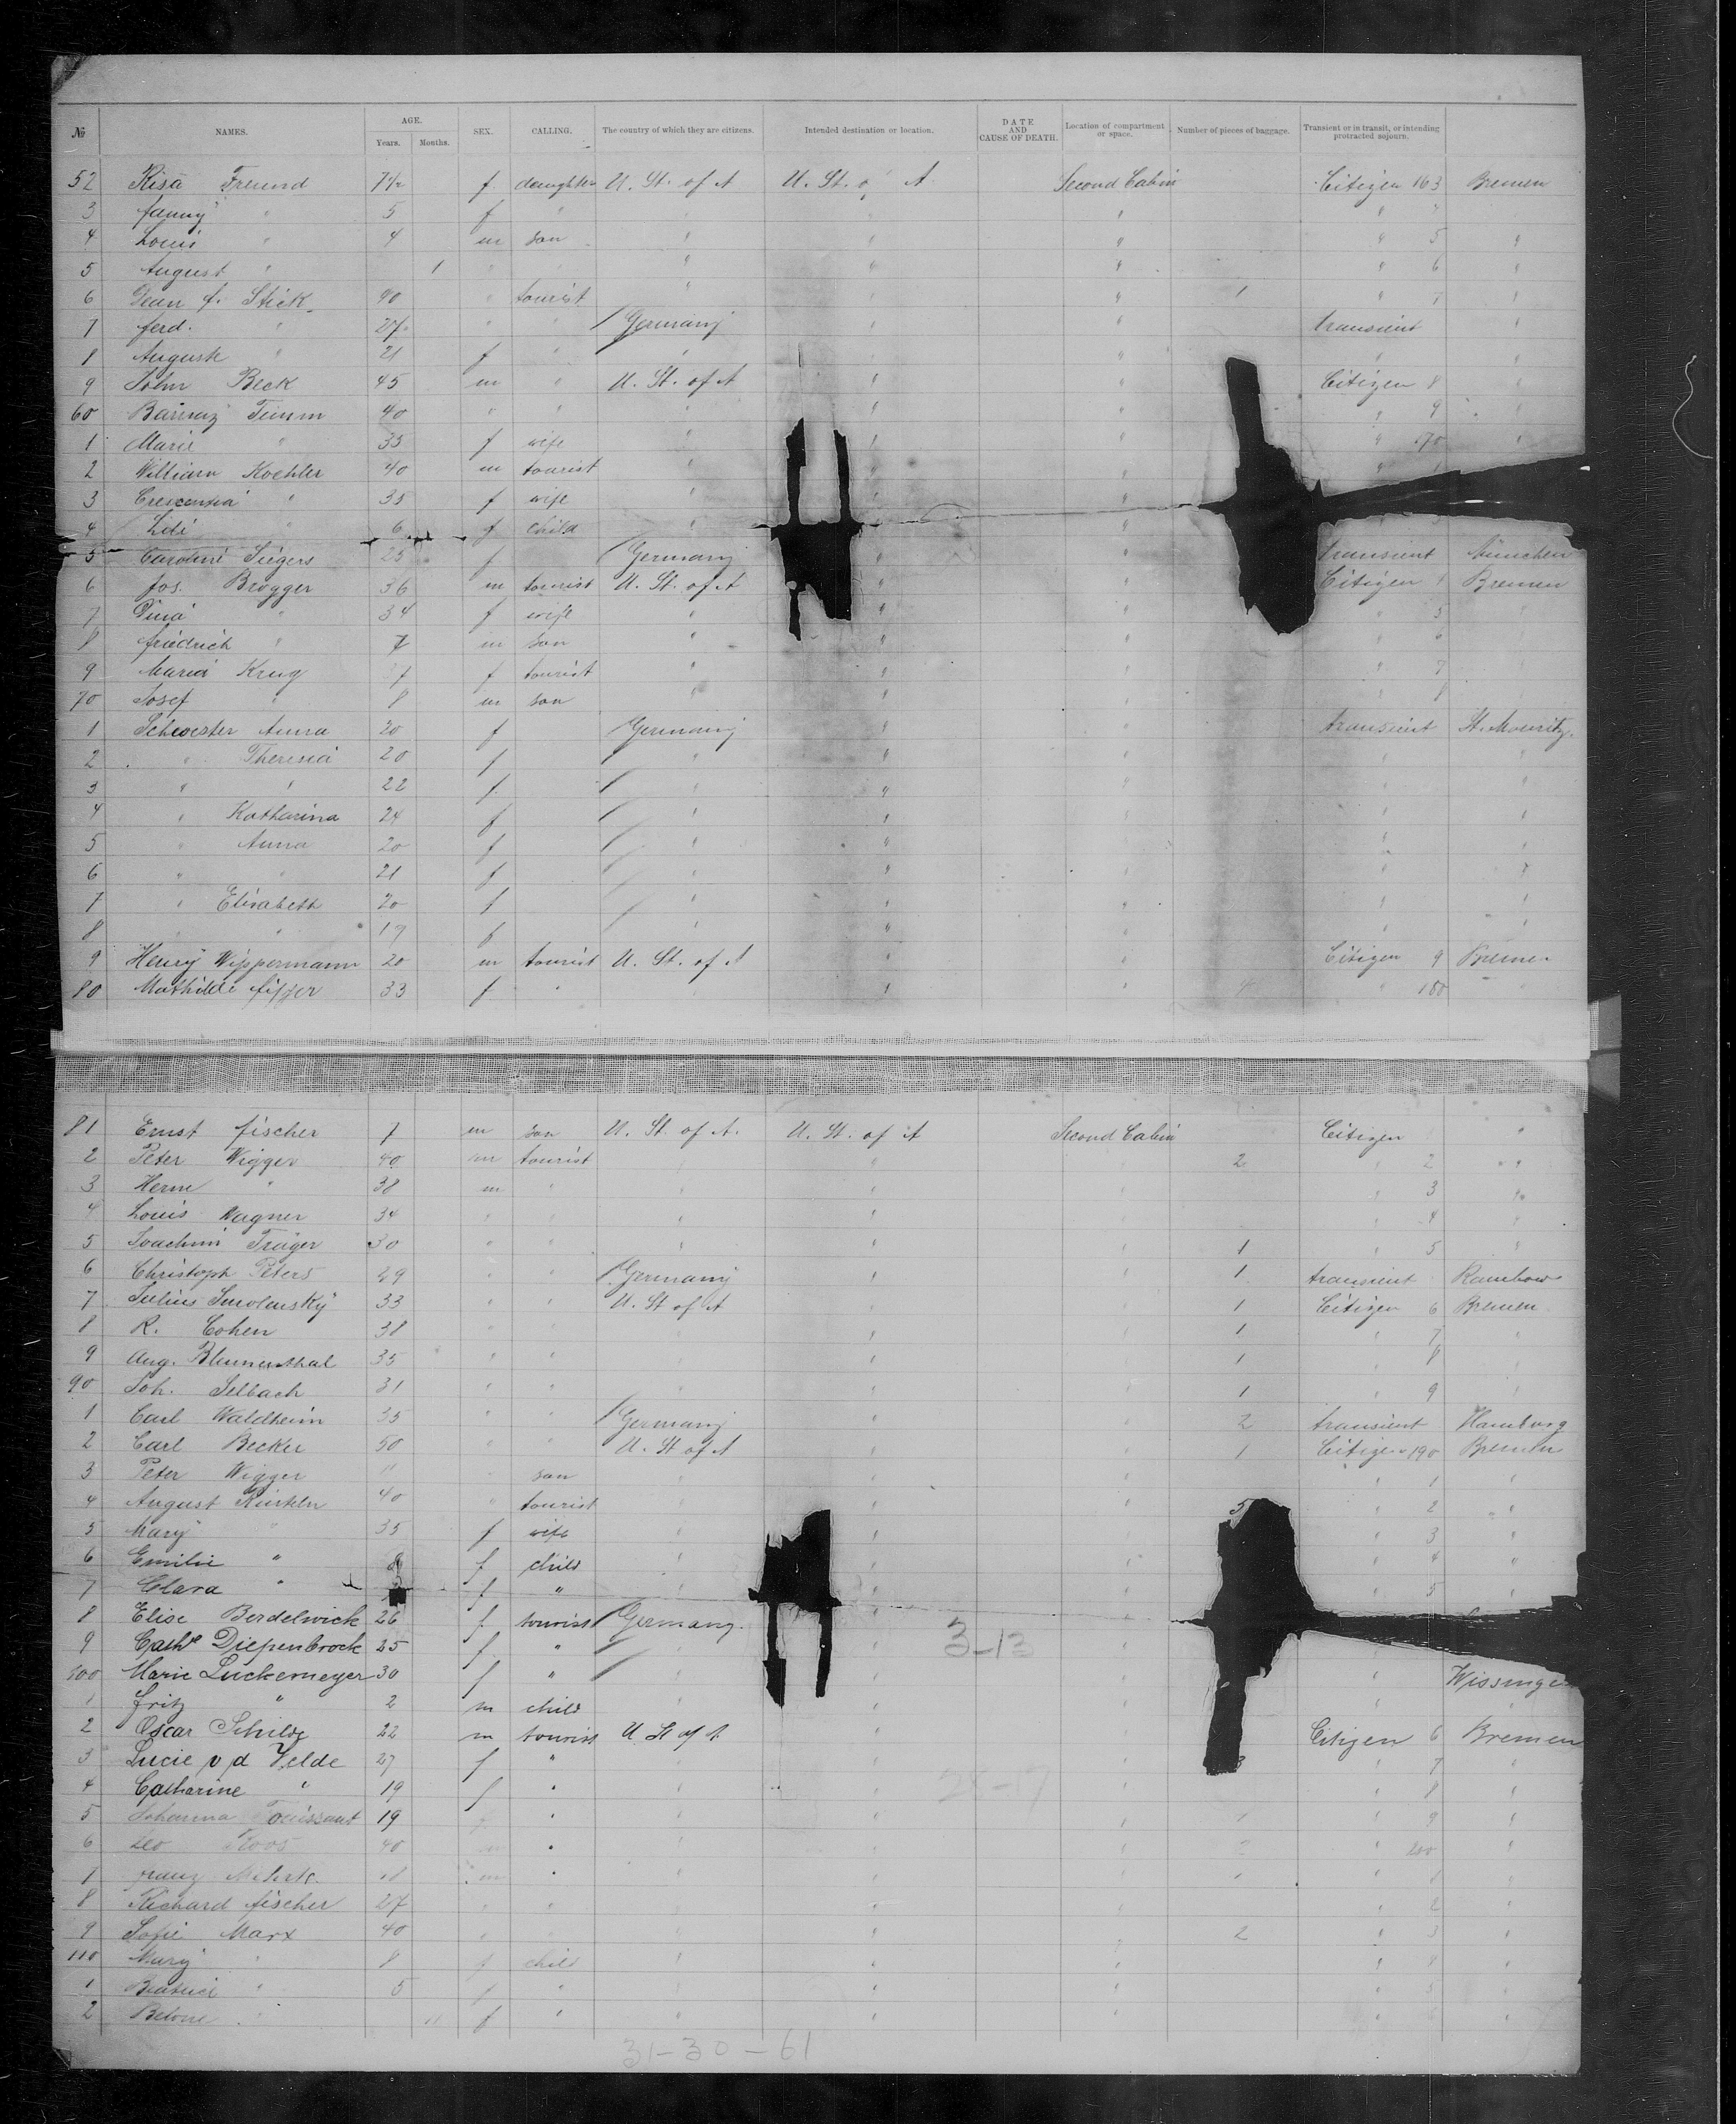 № NAMES. AGE. Years. Months. SEX. CALLING. The country of which they are citizens. Intended destination or location. DATE AND CAUSE OF DEATH. Location of compartment or space. Number of pieces of baggage. Transient or in transit, or intending protracted sojourn.
52 Risa Freund 7½ f. daughter U. St. of A U. St. o A Second Cabin Citizen 163 Bremen
3 fanny " 5 f " " " " "
4 Louis " 4 m son " " " " 5 "
5 August " 1 " " " " " " 6 "
6 Jean f. Stick 40 " tourist " " " 1 " 7 "
7 ferd. " 27 " " Germany " " transient "
8 Auguste " 21 f " " " " " "
9 John Beck 45 m " U. St. of A " " Citizen 8 "
60 Timm 40 " " " " " " 9 "
1 Marie " 35 f wife " " " " 170 "
2 William Koehler 40 m tourist " " " "
3 Crescentia " 35 f wife " " "
4 " 6 f child " "
5 Caroline Siegers 25 f Germany " " transient München
6 Jos. Brögger 36 m tourist U. St. of A " " Citizen Bremen
7 Dina " 34 f wife " " " " 5
8 friedrich " 7 m son " " " " 6
9 Maria Krug f tourist " " " " 7
70 Josef " 8 m son " " " " 8
1 Schwester Anna 20 f Germany " " transient St. Mouritz.
2 " Theresia 20 f " " " " "
3 " " 22 f " " " " "
4 " Katharina 24 f " " " " "
5 " Anna 20 f " " " " "
6 " " 21 f " " " " "
7 " Elisabeth 20 f " " " " "
8 " " 19 f " " " " "
9 Henry Wippermann 20 m tourist U. St. of A " " Citizen 9 Bremen
80 Mathilde 33 f " " " " " 180 "
81 Ernst fischer 7 m son U. St. of A. U. St. of A Second Cabin Citizen "
2 Peter Wigger 40 m tourist " " " 2 " 2 "
3 Herm " 38 m " " " " " 3 "
4 Louis Wagner 34 " " " " " " 4 "
5 Joachim Träger 30 " " " " " 1 " 5 "
6 Christoph Peters 29 " " Germany " " 1 transient
7 Julius Smolensky 33 " " U. St of A " " 1 Citizen 6 Bremen
8 R. Cohen 38 " " " " " 1 " 7 "
9 Aug. Blumenthal 35 " " " " " 1 " 8 "
90 Joh. Selbach 31 " " " " " 1 " 9 "
1 Carl Waldheim 35 " " Germany " " 2 transient Hamburg
2 Carl Becker 50 " " U. St of A " " 1 Citizen 190 Bremen
3 Peter Wigger 11 " son " " " " 1 "
4 August 40 " tourist " " " 5 " 2 "
5 Mary " 35 f wife " " " 3 "
6 Emilie " f child " " " " 4 "
7 Clara " f " " " " " 5
8 Elise Berdelwick 26 f tourist Germany. "
9 Cathe Diepenbrock 25 f " " 3-13 " "
100 Marie Luckemeyer 30 f " " " " Wissinge
1 fritz " 2 m child " " "
2 Oscar Schilde 22 m tourist U St of A " Citizen 6 Bremen
3 Lucie v d Velde 27 f " " " " 3 " 7 "
4 Catharine " 19 f " " " " " 8 "
5 Johanna Touissant 19 " " " " " 9 "
6 Leo 40 m " " " " 2 " 200 "
7 franz m " " " " " 1 "
8 Richard fischer 27 " " " " " " 2 "
9 Sofie Marx 40 " " " " " 2 " 3 "
110 Mary " 8 f child " " " " 4 "
1 " 5 f " " " " " 5 "
2 " 11 f " " " " " "
31-30-61